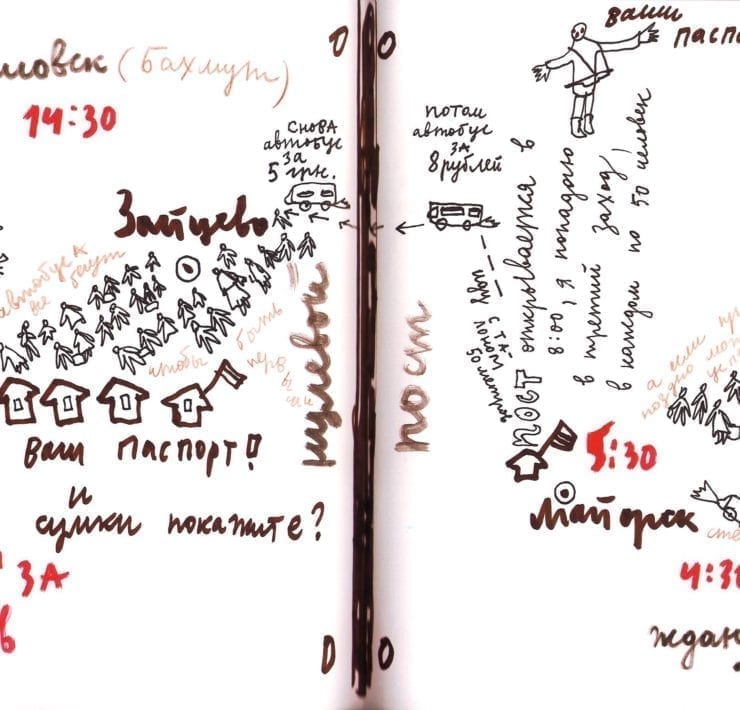 (Бахмут)
14:30
СНОВА
автобус
за
5 грн.
Зайцево
автобуса
все бегут
чтобы быть
первыми
Ваш паспорт!
и
сумки покажите?
ЗА
в
нулевой
пост
0 0
0 0
потом
автобус
ЗА
8 рублей
ваш
паспо
пост открывается в
8:00, я попадаю
в третий заход!
в каждом по 50 человек
50 метров
5:30
Майорск
а если
поздно
4:3
ждан